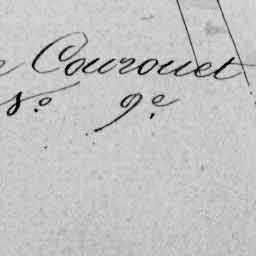 e Courouet
8º 9e